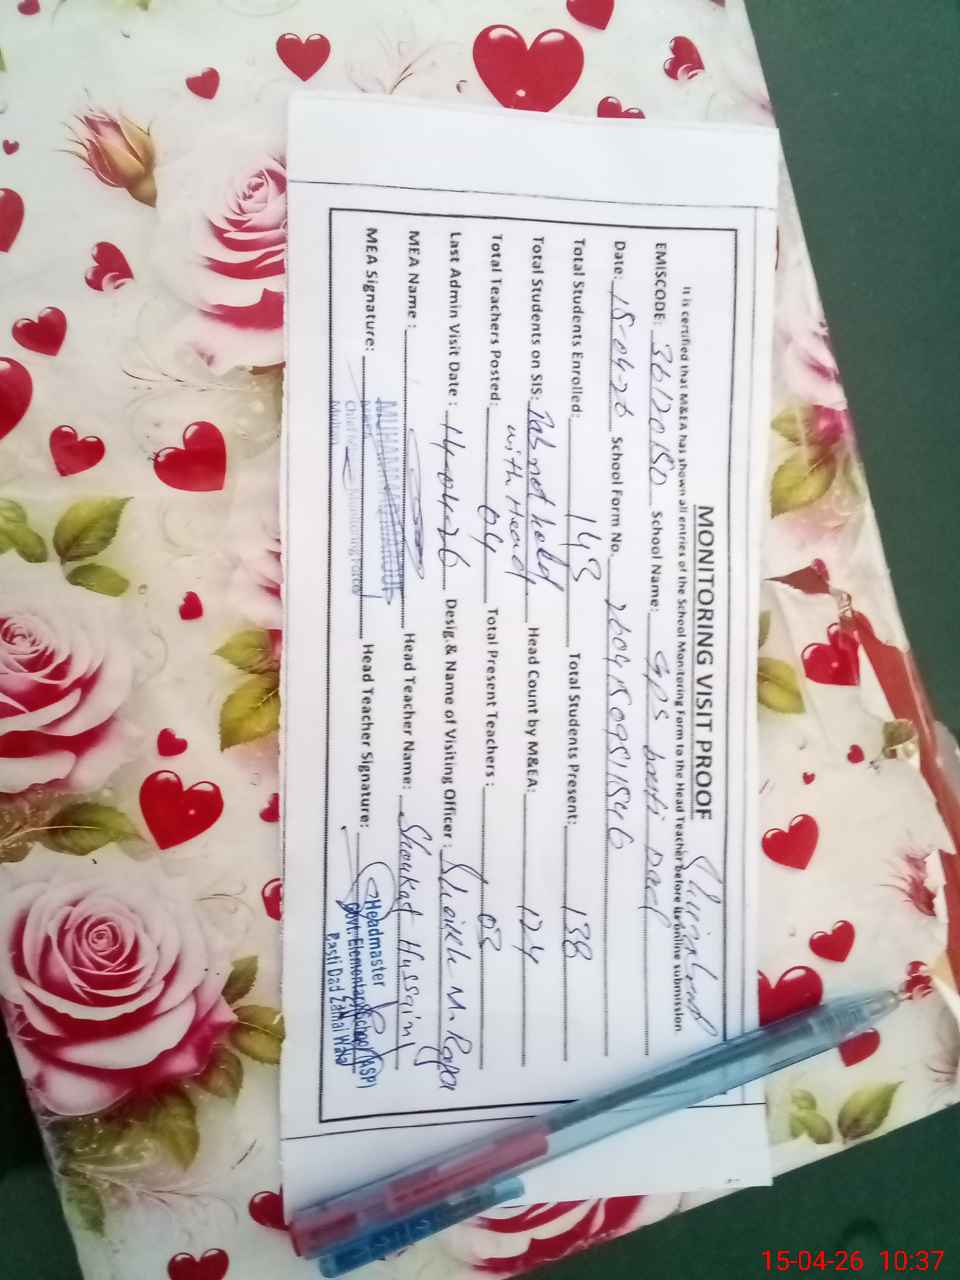 MONITORING VISIT PROOF
It is certified that M&EA has shown all entries of the School Monitoring Form to the Head Teacher before its online submission.
EMISCODE: 36120150 School Name: GPS basti Dad
Date: 15-04-26 School Form No. 2604150951546
Total Students Enrolled: 143 Total Students Present: 138
Total Students on SIS: Tab not held Head Count by M&EA: 124
with Head
Total Teachers Posted: 04 Total Present Teachers : 03
Last Admin Visit Date : 14-04-26 Desig.& Name of Visiting Officer : Sheikh M.
MEA Name : Head Teacher Name: Shoukat Hussain
MEA Signature: Head Teacher Signature:
Headmaster
Govt. Elementary School (ASP)
Basti Dad
15-04-26 10:37